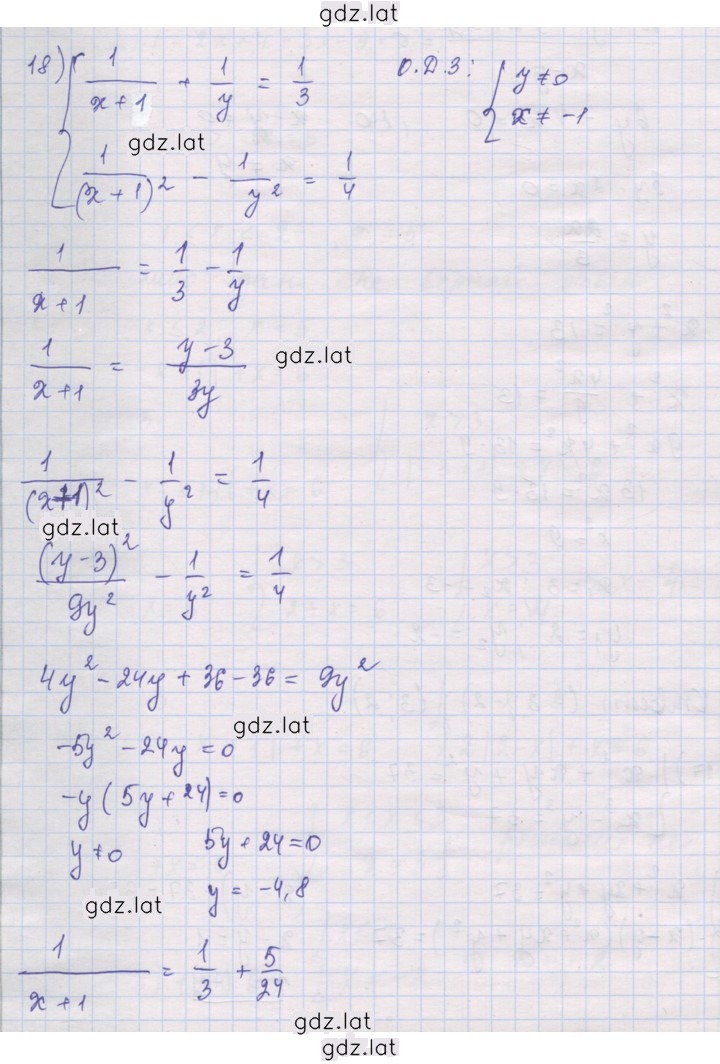 gdz.lat
18) { 1/(x+1) + 1/y = 1/3 О.Д.З: { y ≠ 0
x ≠ -1
gdz.lat
1/(x+1)² - 1/y² = 1/4
1/(x+1) = 1/3 - 1/y
1/(x+1) = (y-3)/3y gdz.lat
1/(x+1)² - 1/y² = 1/4
gdz.lat
(y-3)²/9y² - 1/y² = 1/4
4y² - 24y + 36 - 36 = 9y²
gdz.lat
-5y² - 24y = 0
-y(5y + 24) = 0
y ≠ 0 5y + 24 = 0
gdz.lat y = -4,8
1/(x+1) = 1/3 + 5/24
gdz.lat
gdz.lat